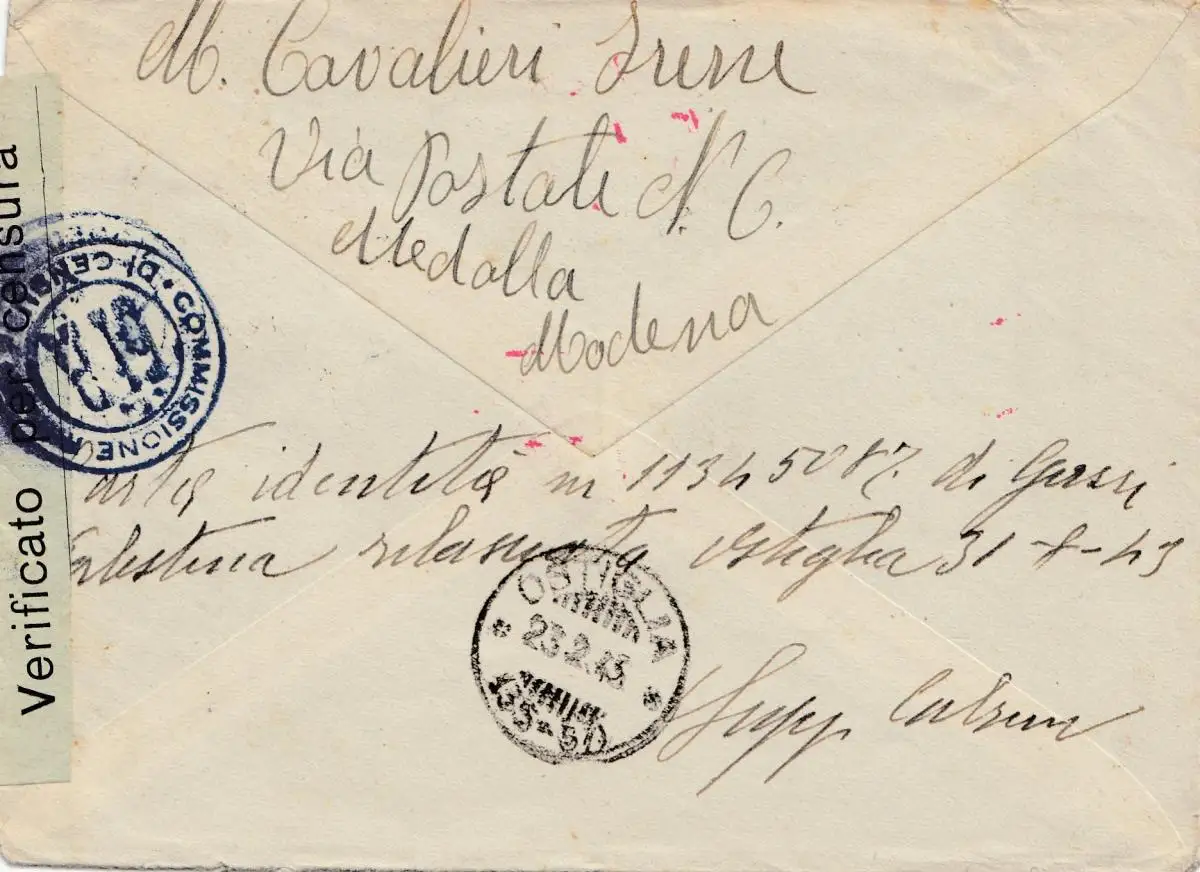 M. Cavalieri Irene
Via Postale N. C.
Medolla
Modena
Verificato per censura
COMMISSIONE
DI CENS
arta identità n 11345087. di
rilasciata Ostiglia 31-8-43
OSTIGLIA
23.2.43